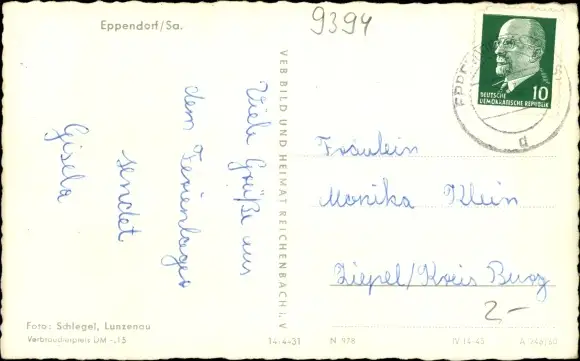 Eppendorf/Sa.
9394
10
DEUTSCHE
DEMOKRATISCHE REPUBLIK
d
Viele Grüße aus
dem Ferienlager
sendet
Gisela
VEB BILD UND HEIMAT REICHENBACH I. V
Fräulein
Monika Klein
Ziepel/Kreis Burg
2,-
Foto: Schlegel, Lunzenau
Verbraucherpreis DM -,15
14-4-31 N 978 IV-14-45